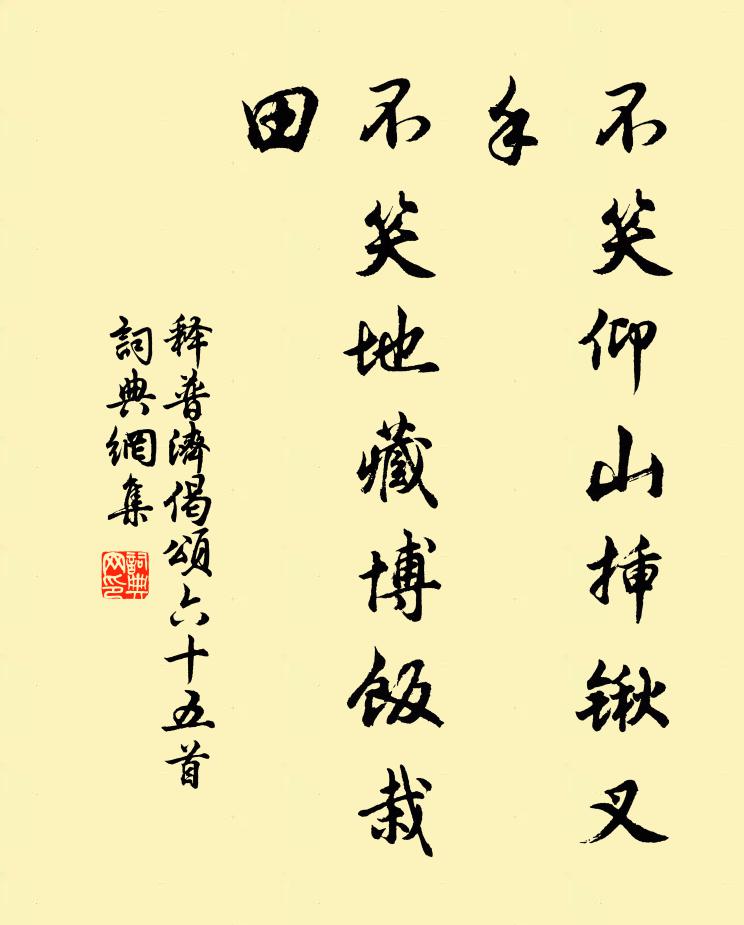 不笑仰山插锹叉
手
不笑地藏博飯栽
田
释普濟偈頌六十五首
詞典網集
詞典网印